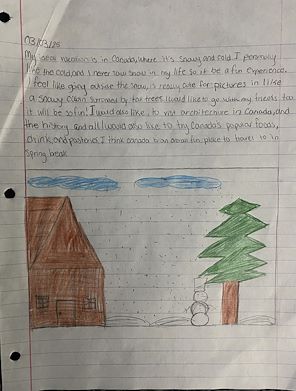 03/03/25
My ideal vacation is in Canada, where it's snowy and cold I personally
like the cold, and I never saw snow in my life so it be a fun experience.
I feel like going outside the snow, is really cute for pictures in like
a snowy cabin surround by fur trees. I would like to go with my friends too,
it will be so fun! I would also like, to visit architecture in Canada, and
the history. and all I would also like to try Canada's popular foods,
drink, and pasteries. I think canada is an dream fun place to travel to in
spring break